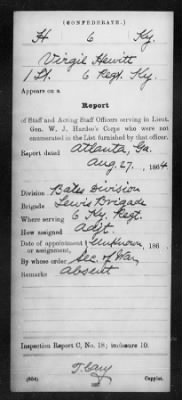 (CONFEDERATE.)
H 6 Ky.
Virgil Hewitt
1 Lt. 6 Regt. Ky.
Appears on a
Report
of Staff and Acting Staff Officers serving in Lieut.
Gen. W. J. Hardee's Corps who were not
enumerated in the List furnished by that officer.
Report dated Atlanta, Ga.
Aug. 27, 1864
Division Bates Division
Brigade Lewis Brigade
Where serving 6 Ky. Regt.
How assigned Adjt.
Date of appointment or assignment, Unknown, 186
By whose order Sec. of War
Remarks Absent
Inspection Report C, No. 18; inclosure 10.
T. Cary
Copyist.